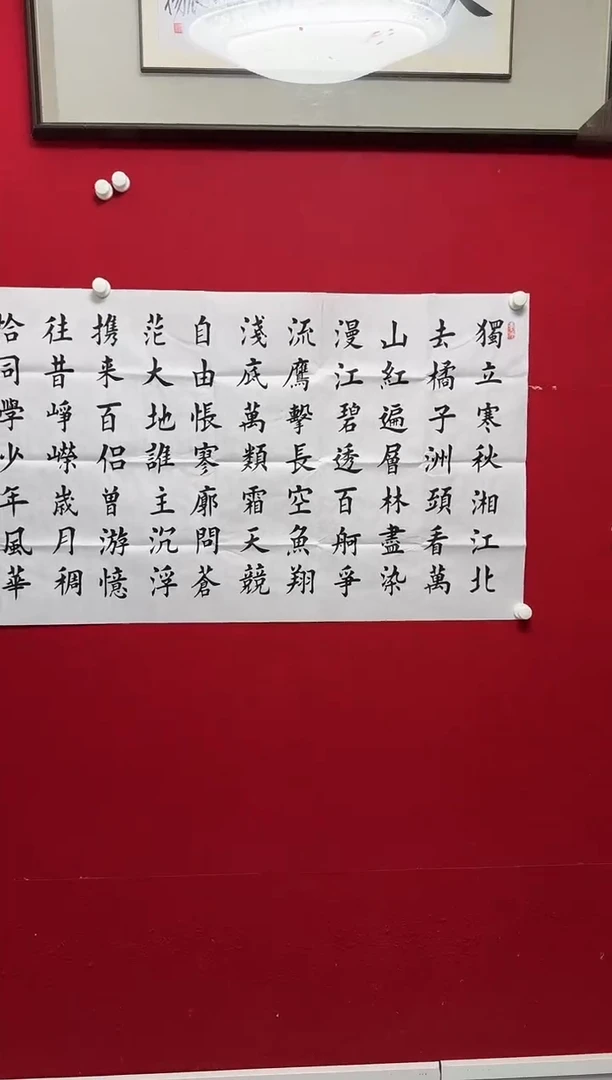 獨立寒秋湘江北
去橘子洲頭看萬
山紅遍層林盡染
漫江碧透百舸爭
流鷹擊長空魚翔
淺底萬類霜天競
自由悵寥廓問蒼
茫大地誰主沉浮
携来百侣曾游憶
往昔崢嶸歲月稠
恰同學少年風華